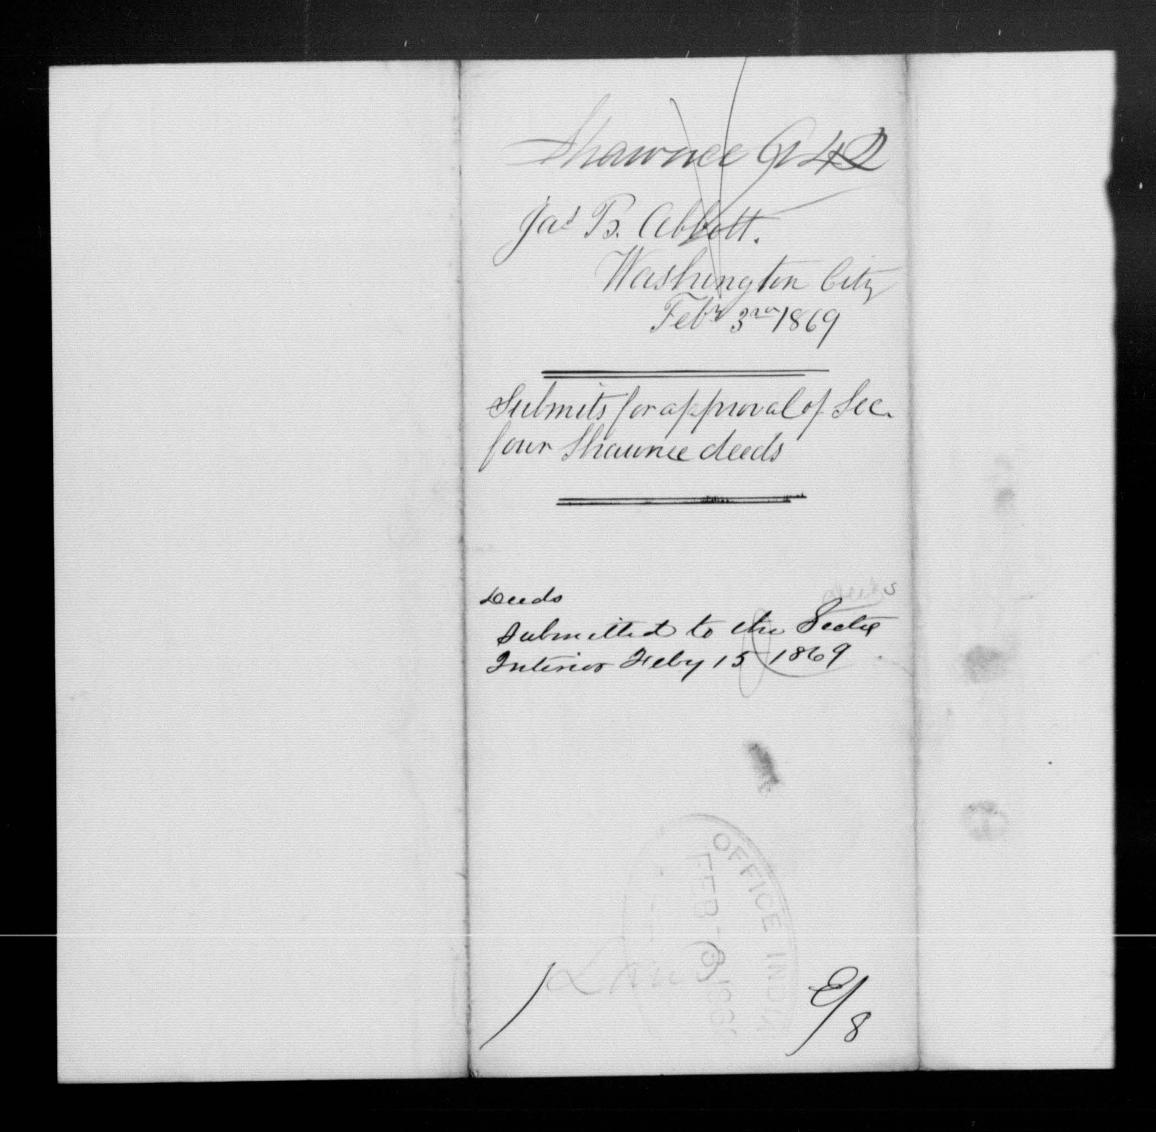 Shawnee A 42
Jas B. Abbott.
Washington City
Feby 3rd 1869
Submits for approval of Sec.
four Shawnee deeds
deeds
Deeds
Submitted to the Secty
Interior Feby 15 1869
OFFICE INDIA
FEB 3 186
Land
E/8